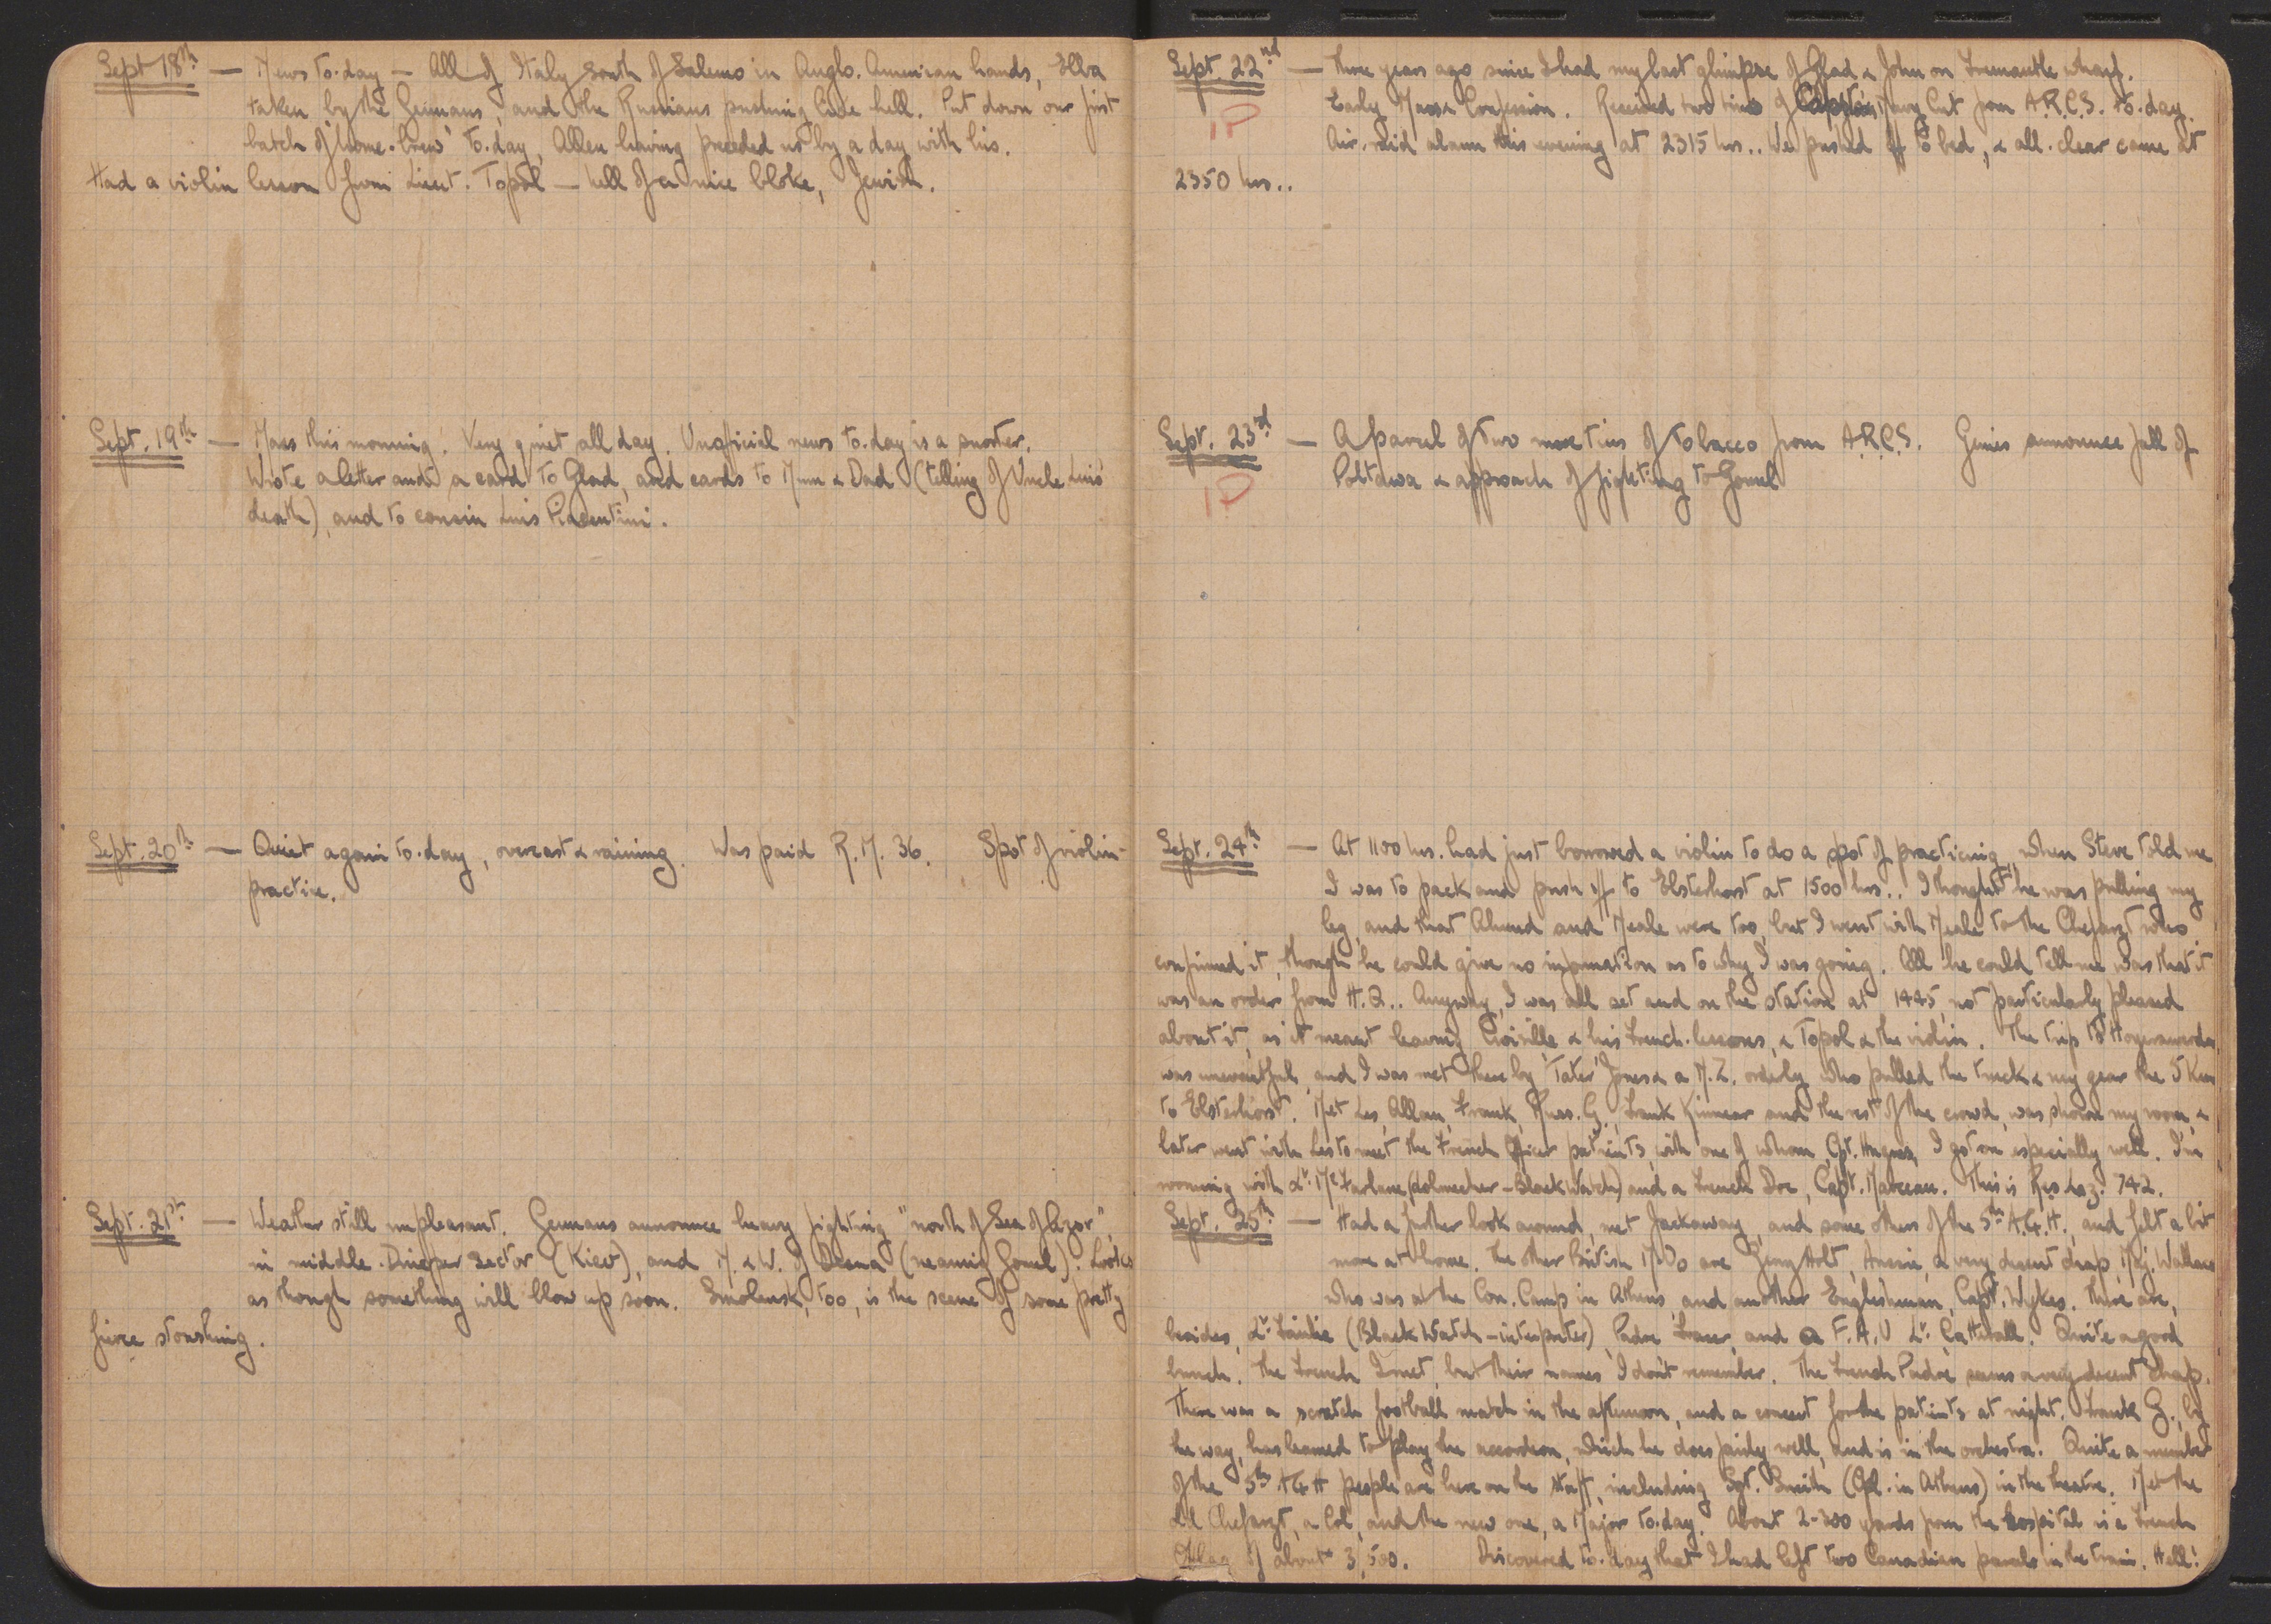 Sept 18th — News to-day — All of Italy south of Salerno in Anglo-American hands, Elba
taken by the Germans, and the Russians pushing like hell. Put down our first
batch of 'home-brew' to-day, Allen having preceded us by a day with his.
Had a violin lesson from Lieut. Topol — hell of a nice bloke, Jewish.
Sept. 19th — Mass this morning. Very quiet all day. Unofficial news to-day is a snorter.
Wrote a letter and a card to Glad, and cards to Mum & Dad (telling of Uncle Luis'
death), and to cousin Luis Piacentini.
Sept. 20th — Quiet again to-day, overcast & raining. Was paid R.M. 36. Spot of violin-
practice.
Sept. 21st — Weather still unpleasant. Germans announce heavy fighting "north of Sea of Azov",
in middle-Dnieper sector (Kiev), and N. & W. of Desna (nearing Gomel). Looks
as though something will blow up soon. Smolensk, too, is the scene of some pretty
fierce stoushing.
Sept. 22nd — Three years ago since I had my last glimpse of Glad & John on Fremantle wharf.
1P
Early Mass & Confession. Received two tins of Capstan Navy Cut from A.R.C.S. to-day.
Air-raid alarm this evening at 2315 hrs.. We pushed off to bed, & all-clear came at
2350 hrs..
Sept. 23rd — A parcel of two more tins of tobacco from A.R.C.S. Gerries announce fall of
1P
Poltawa & approach of fighting to Gomel
Sept. 24th — At 1100 hrs. had just borrowed a violin to do a spot of practicing, when Steve told me
I was to pack and push off to Elsterhorst at 1500 hrs.. I thought he was pulling my
leg, and that Ahmed and Neale were too, but I went with Neale to the Chefarzt who
confirmed it, though he could give no information as to why I was going. All he could tell me was that it
was an order from H.Q.. Anyway, I was all set and on the station at 1445, not particularly pleased
about it, as it meant leaving & his French-lessons, & Topol & the violin. The trip to Hoyerswerda
was uneventful, and I was met there by 'Tater' Jones & a N.Z. orderly who pulled the truck & my gear the 5 Km
to Elsterhorst. Met Les, Allan, Frank, Russ. G., Frank Kinnear and the rest of the crowd, was shown my room, &
later went with Les to meet the French officer patients, with one of whom, Cpt. I got on especially well. I'm
rooming with Lt. McFarlane (dolmecher – Black Watch) and a French Doc, Capt. Marceau. This is Res. Laz. 742.
Sept. 25th — Had a further look around, met Jackaway, and some others of the 5th A.G.H., and felt a bit
more at home. The other British M.O's are Holt, Aussie, a very decent chap, Maj. Wallace
who was at the Con. Camp in Athens, and another Englishman, Capt. Wykes. There are,
besides, Lt. Fairlie (Black Watch – interpreter), Padre Fraser, and a F.A.U Lt. Catterall. Quite a good
bunch. The French I met, but their names I don't remember. The French Padre seems a very decent chap.
There was a scratch football match in the afternoon, and a concert for the patients at night. Frank G., by
the way, has learned to play the accordeon, which he does fairly well, and is in the orchestra. Quite a number
of the 5th AGH people are here on the staff, including Sgt. Smith (Cpl. in Athens) in the theatre. Met the
old Chefarzt, a Col, and the new one, a Major to-day. About 2-300 yards from the hospital is a French
Oflag of about 3,500. Discovered to-day that I had left two Canadian parcels in the train. Hell!